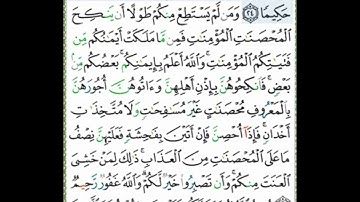 حَكِيمًا ٢٤ وَمَن لَّمْ يَسْتَطِعْ مِنكُمْ طَوْلًا أَن يَنكِحَ
ٱلْمُحْصَنَٰتِ ٱلْمُؤْمِنَٰتِ فَمِن مَّا مَلَكَتْ أَيْمَٰنُكُم مِّن
فَتَيَٰتِكُمُ ٱلْمُؤْمِنَٰتِ ۚ وَٱللَّهُ أَعْلَمُ بِإِيمَٰنِكُم ۚ بَعْضُكُم مِّنۢ
بَعْضٍ ۚ فَٱنكِحُوهُنَّ بِإِذْنِ أَهْلِهِنَّ وَءَاتُوهُنَّ أُجُورَهُنَّ
بِٱلْمَعْرُوفِ مُحْصَنَٰتٍ غَيْرَ مُسَٰفِحَٰتٍ وَلَا مُتَّخِذَٰتِ
أَخْدَانٍ ۚ فَإِذَآ أُحْصِنَّ فَإِنْ أَتَيْنَ بِفَٰحِشَةٍ فَعَلَيْهِنَّ نِصْفُ
مَا عَلَى ٱلْمُحْصَنَٰتِ مِنَ ٱلْعَذَابِ ۚ ذَٰلِكَ لِمَنْ خَشِىَ
ٱلْعَنَتَ مِنكُمْ ۚ وَأَن تَصْبِرُوا۟ خَيْرٌ لَّكُمْ ۗ وَٱللَّهُ غَفُورٌ رَّحِيمٌ